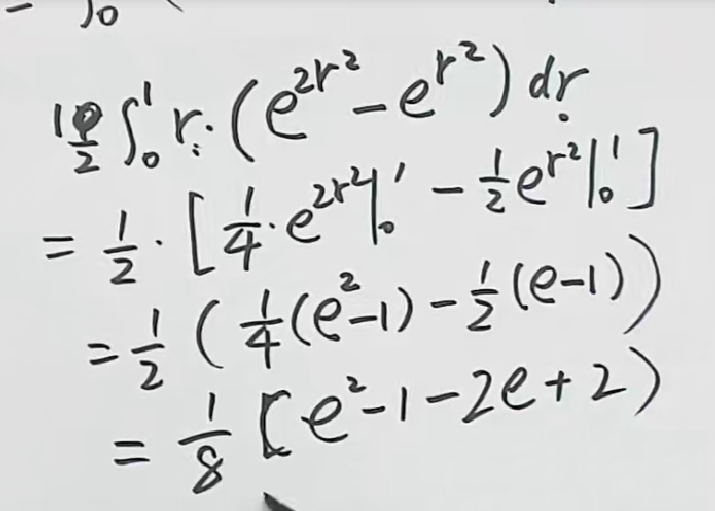 - ∫₀
1/2 ∫₀¹ r·(e^{2r²} - e^{r²}) dr
= 1/2 · [1/4 · e^{2r²}|₀¹ - 1/2 e^{r²}|₀¹]
= 1/2 (1/4 (e²-1) - 1/2 (e-1))
= 1/8 [e²-1-2e+2)